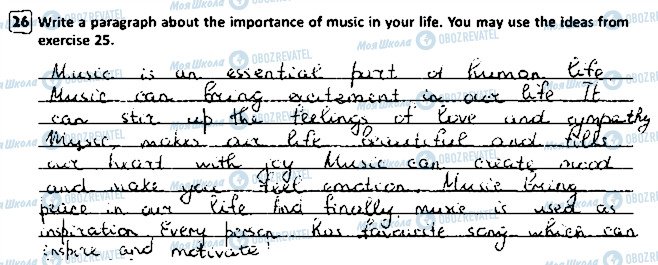 26 Write a paragraph about the importance of music in your life. You may use the ideas from
exercise 25.
Music is an essential part of human life
Music can bring excitement in our life It
can stir up the feelings of love and sympathy
Music, makes our life beautiful and files
our heart with joy Music can create mood
and make you feel emotion. Music bring
peace in our life And finally music is used as
inspiration. Every person has favourite song which can
inspire and motivate!
Моя Школа OBOZREVATEL